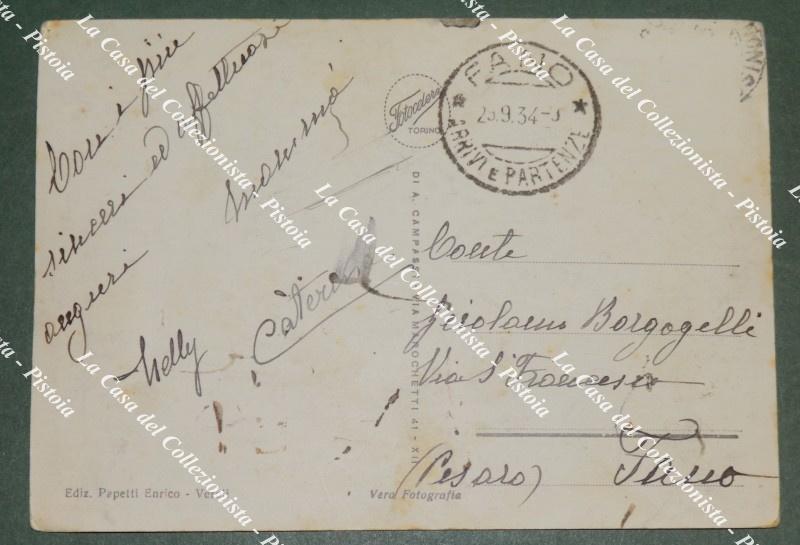 Con i più
sinceri ed affettuosi
auguri
mammá
Nelly
Caterina
Fotocelere
TORINO
FANO
23.9.34
ARRIVI E PARTENZE
DI A. CAMPASSI VIA MAROCHETTI 41 - XII
Conte
Girolamo Borgogelli
Via S. Francesco
(Pesaro) Fano
Ediz. Papetti Enrico -
Vera Fotografia
La Casa del Collezionista - Pistoia